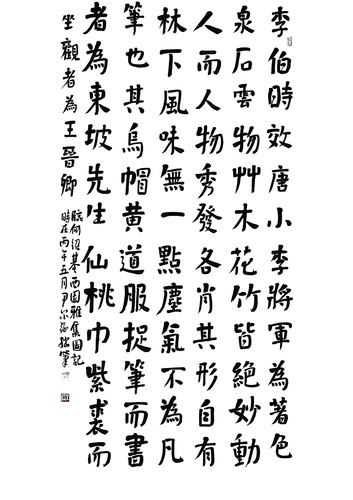 李伯時效唐小李將軍為著色
泉石雲物艸木花竹皆絕妙動
人而人物秀發各肖其形自有
林下風味無一點塵氣不為凡
筆也其烏帽黃道服捉筆而書
者為東坡先生仙桃巾紫裘而
坐觀者為王晉卿
臨何紹基西園雅集圖記
時在丙午五月尹尔拙筆